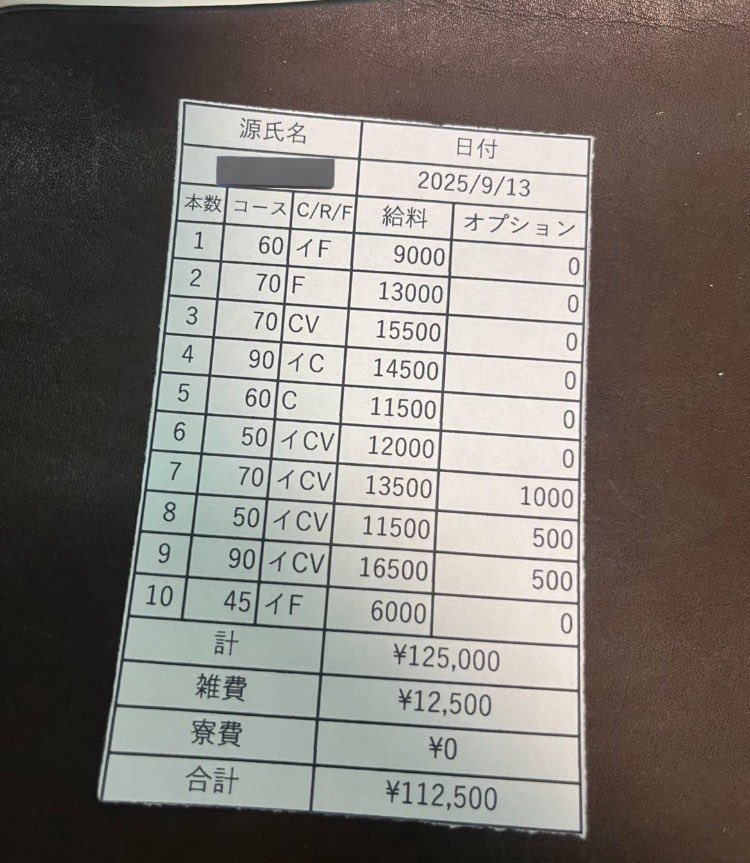 源氏名 日付
2025/9/13
本数 コース C/R/F 給料 オプション
1 60 イF 9000 0
2 70 F 13000 0
3 70 CV 15500 0
4 90 イC 14500 0
5 60 C 11500 0
6 50 イCV 12000 0
7 70 イCV 13500 1000
8 50 イCV 11500 500
9 90 イCV 16500 500
10 45 イF 6000 0
計 ¥125,000
雑費 ¥12,500
寮費 ¥0
合計 ¥112,500